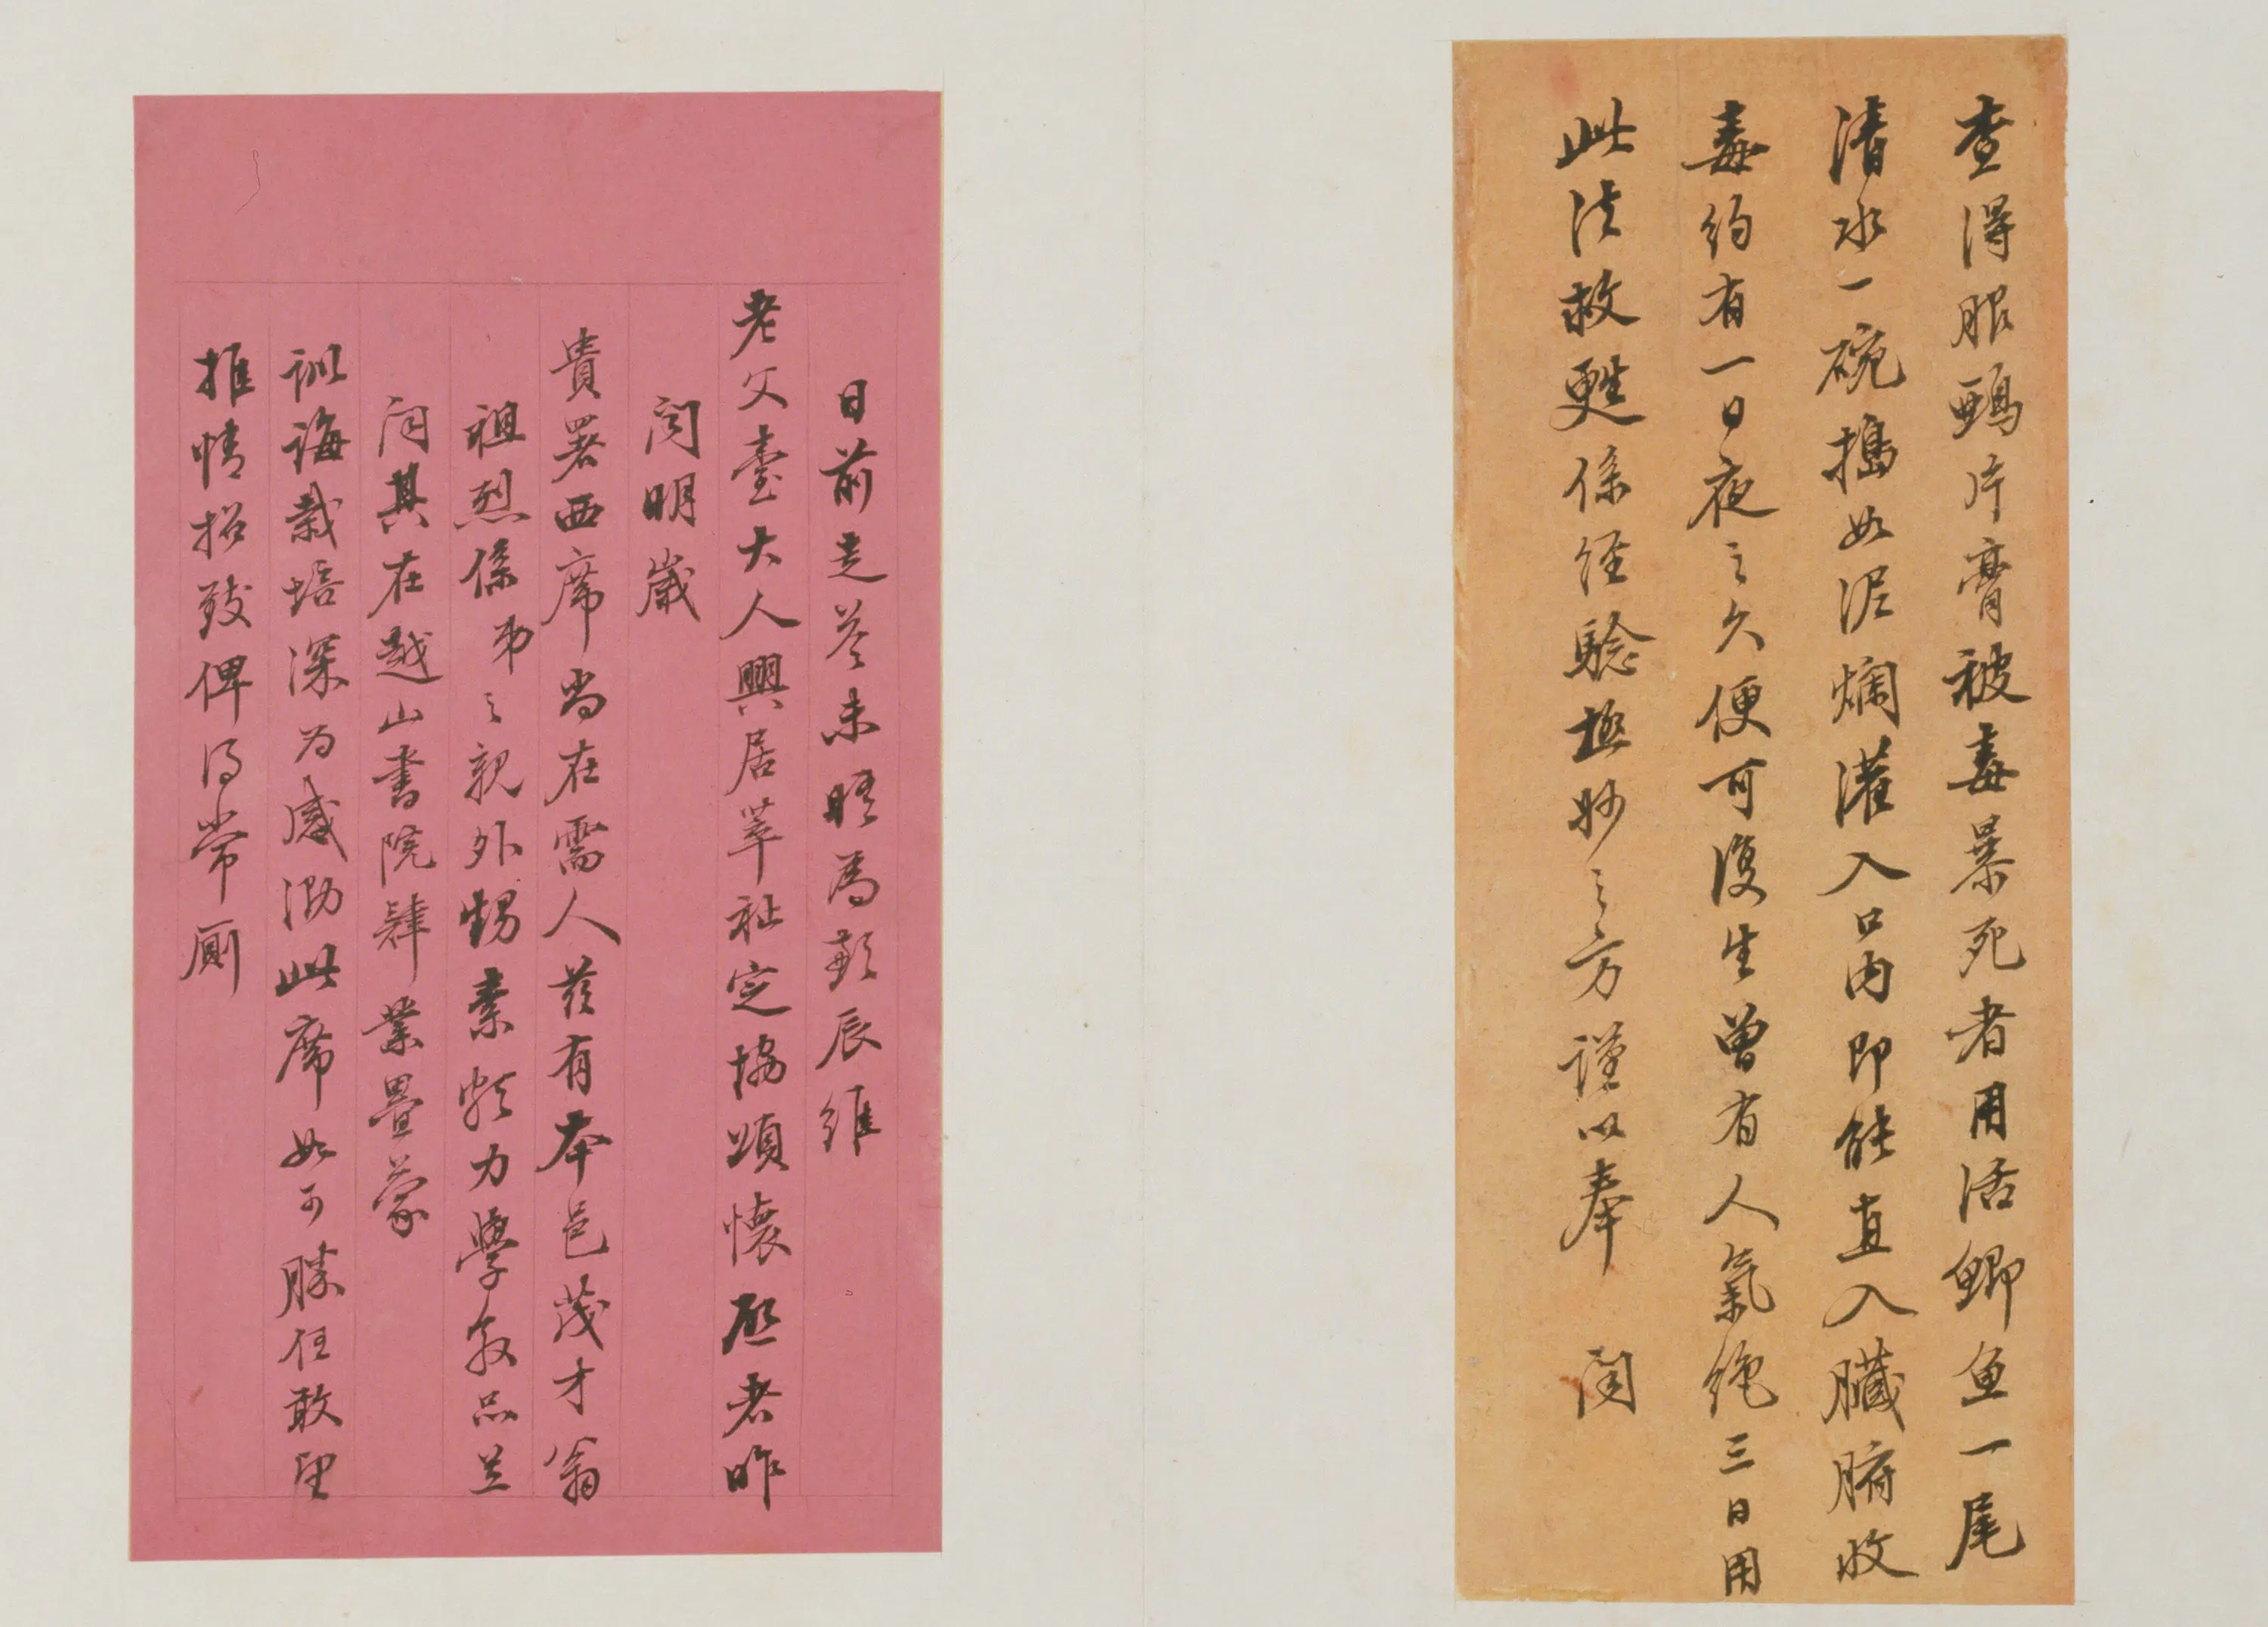 查得服鴉片膏被毒暴死者用活鯽魚一尾
清水一碗搗如泥爛灌入口內即能直入臟腑收
毒約有一日夜之久便可復生曾有人氣絕三日用
此法救甦係經驗極妙之方謹以奉 聞
日前走答未晤為歉辰維
老父臺大人興居萃祉定協頌懷啟者昨
聞明歲
貴署西席尚在需人茲有本邑茂才翁
祖烈係弟之親外甥素頗力學敦品並
聞其在越山書院肄業疊蒙
訓誨栽培深為感泐此席如可勝任敢望
推情招致俾得常廁